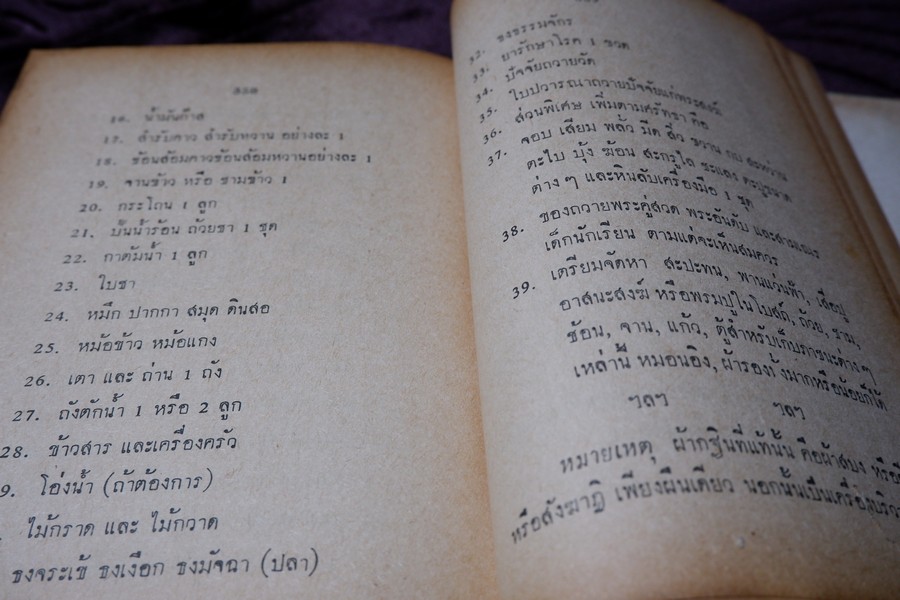 16. น้ำมันก๊าส
17. สำรับคาว สำรับหวาน อย่างละ 1
18. ช้อนส้อมคาวช้อนส้อมหวานอย่างละ 1
19. จานข้าว หรือ ชามข้าว 1
20. กระโถน 1 ลูก
21. ปั้นน้ำร้อน ถ้วยชา 1 ชุด
22. กาต้มน้ำ 1 ลูก
23. ใบชา
24. หมึก ปากกา สมุด ดินสอ
25. หม้อข้าว หม้อแกง
26. เตา และ ถ่าน 1 ถัง
27. ถังตักน้ำ 1 หรือ 2 ลูก
28. ข้าวสาร และเครื่องครัว
9. โอ่งน้ำ (ถ้าต้องการ)
ไม้กราด และ ไม้กวาด
ธงจระเข้ ธงเงือก ธงมัจฉา (ปลา)
32. ธงธรรมจักร
33. ยารักษาโรค 1 ขวด
34. ปัจจัยถวายวัด
35. ใบปวารณาถวายปัจจัยแก่พระสงฆ์
36. ส่วนพิเศษ เพิ่มตามศรัทธา คือ
37. จอบ เสียม พลั่ว มีด สิ่ว ขวาน กบ
ตะไบ บุ้ง ฆ้อน สะกรูไล ชะแลง ตะปูขนาด
ต่างๆ และหินลับเครื่องมือ 1 ชุด
38. ของถวายพระคู่สวด พระอันดับ และสามเณร
เด็กนักเรียน ตามแต่จะเห็นสมควร
39. เตรียมจัดหา สะปะทน, พานแว่นฟ้า, เสื่อปู
อาสนะสงฆ์ หรือพรมปูในโบสถ์, ถ้วย, ชาม,
ช้อน, จาน, แก้ว, ตู้สำหรับเก็บภาชนะต่างๆ
เหล่านี้ หมอนอิง, ผ้ารองนั่งมากหรือน้อยก็ได้
ฯลฯ ฯลฯ
หมายเหตุ ผ้ากฐินที่แท้นั้น คือผ้าสบง
หรือสังฆาฏิ เพียงผืนเดียว นอกนั้นเป็นเครื่องบริวา